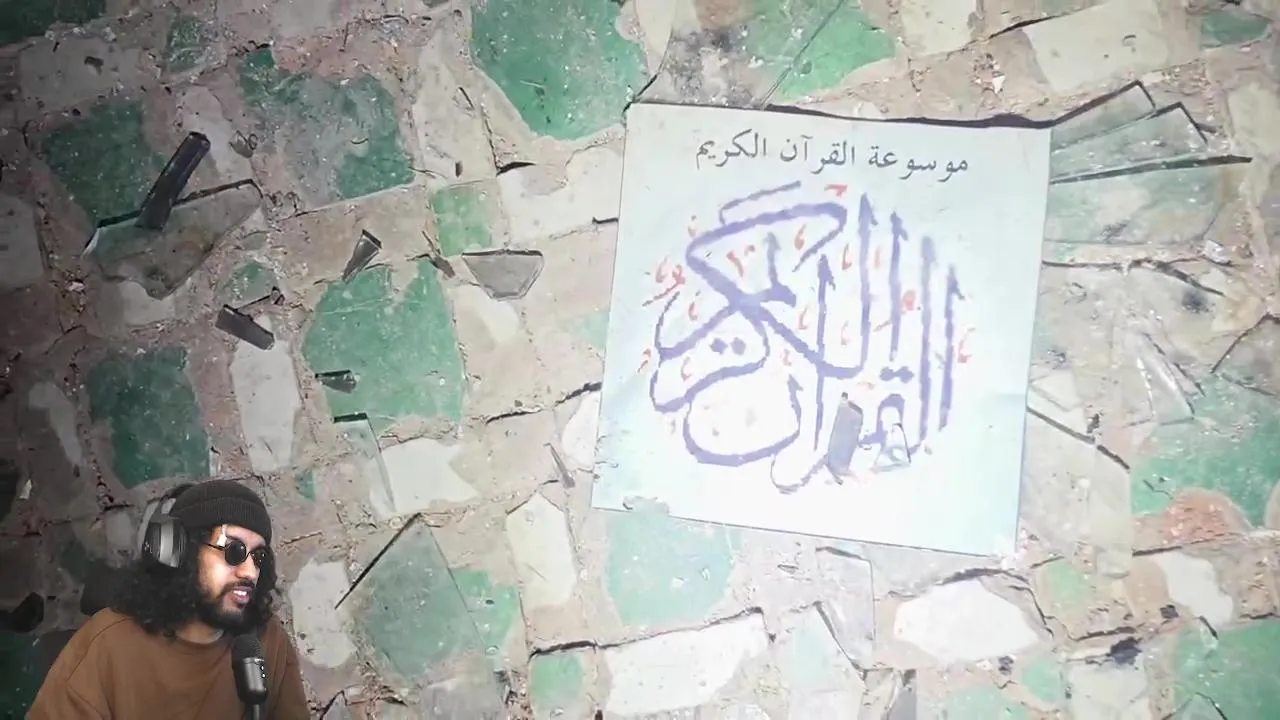 موسوعة القرآن الكريم
القرآن الكريم